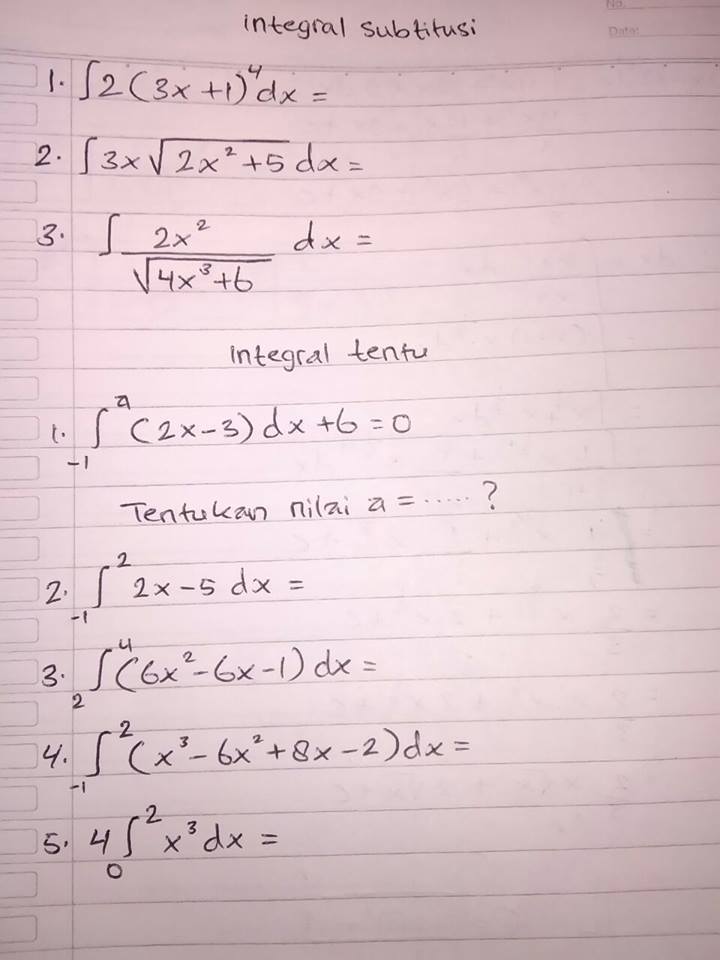 No.
Date:
integral subtitusi
1. ∫2(3x+1)⁴dx =
2. ∫3x√(2x²+5) dx =
3. ∫ 2x²/√(4x³+6) dx =
integral tentu
1. ∫₋₁ᵃ (2x-3)dx +6 = 0
Tentukan nilai a = ..... ?
2. ∫₋₁² 2x-5 dx =
3. ∫₂⁴(6x²-6x-1)dx =
4. ∫₋₁²(x³-6x²+8x-2)dx =
5. 4∫₀² x³dx =